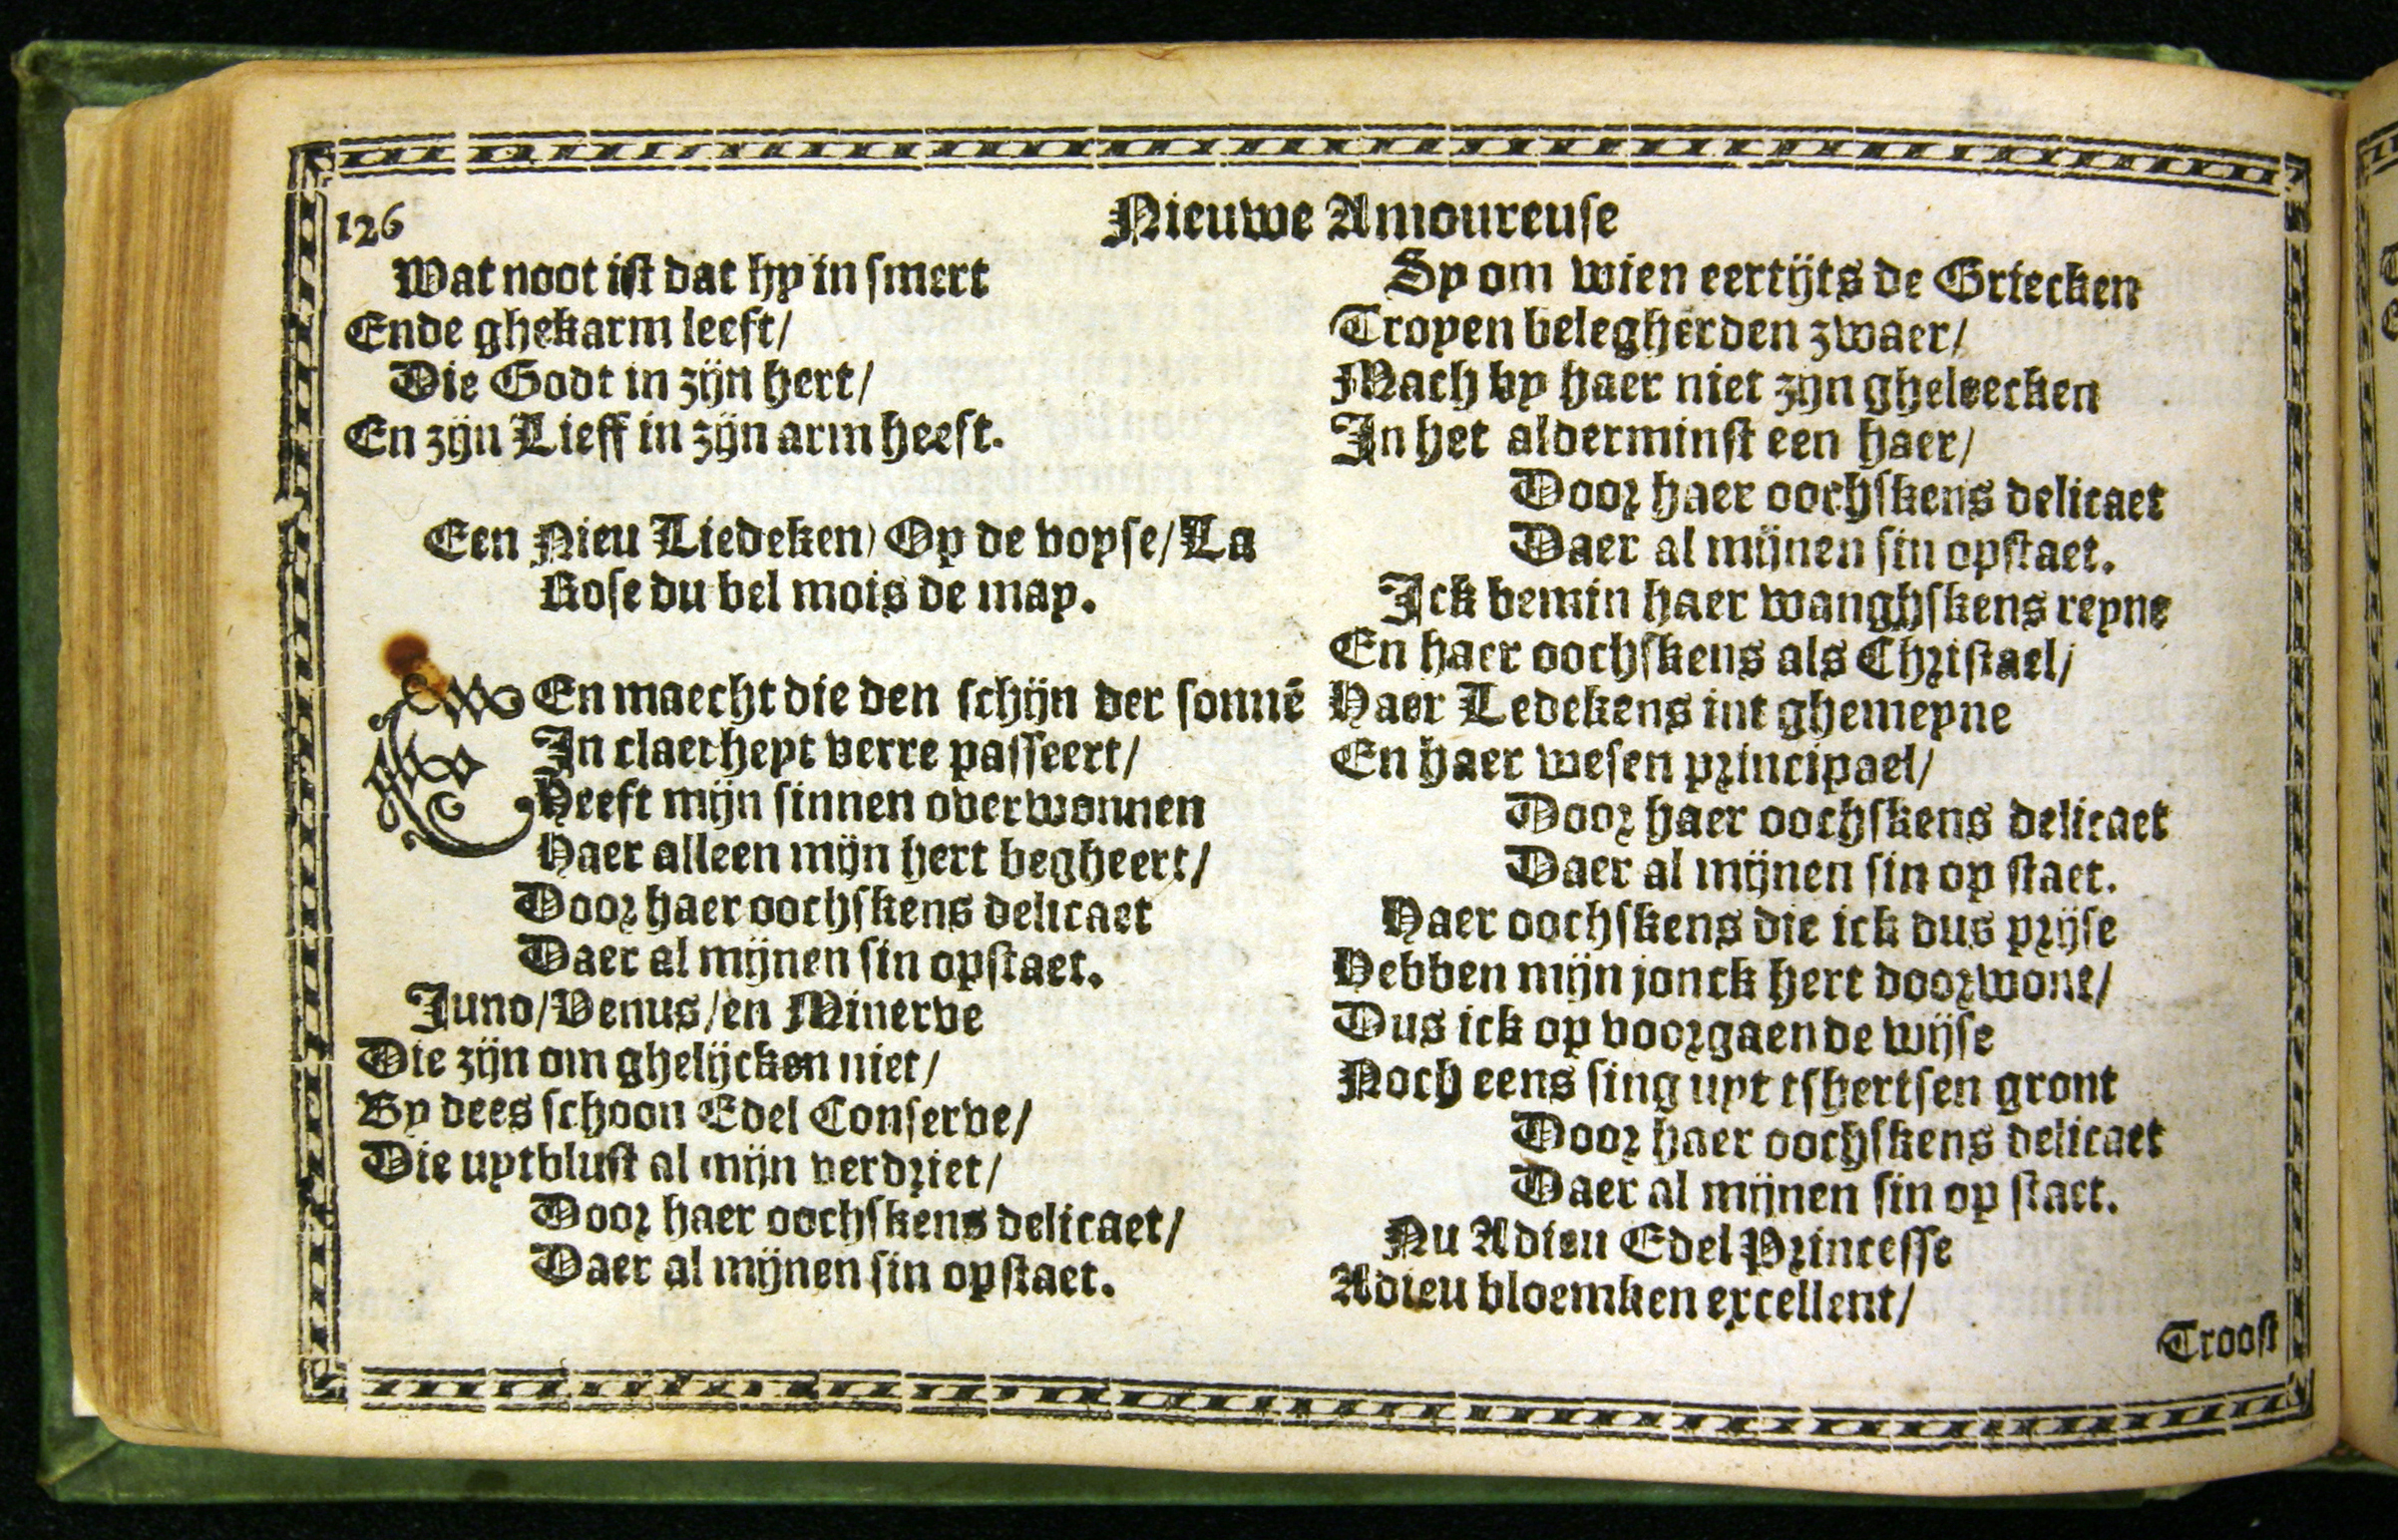 126
Nieuwe Amoureuse
Wat noot ist dat hy in smert
Ende ghekarm leeft/
Die Godt in zijn hert/
En zijn Lieff in zijn arm heeft.
Een Nieu Liedeken/ Op de voyse/ La
Rose du bel mois de may.
Een maecht die den schijn der sonnē
In claerheyt verre passeert/
Heeft mijn sinnen overwonnen
Haer alleen mijn hert begheert/
Door haer oochskens delicaet
Daer al mijnen sin opstaet.
Juno/ Venus/ en Minerve
Die zijn om ghelijcken niet/
By dees schoon Edel Conserve/
Die uytblust al mijn verdriet/
Door haer oochskens delicaet/
Daer al mijnen sin opstaet.
Sy om wien eertijts de Griecken
Troyen belegherden zwaer/
Mach by haer niet zijn gheleecken
In het alderminst een haer/
Door haer oochskens delicaet
Daer al mijnen sin opstaet.
Ick bemin haer wanghskens reyne
En haer oochskens als Christael/
Haer Ledekens int ghemeyne
En haer wesen principael/
Door haer oochskens delicaet
Daer al mijnen sin op staet.
Haer oochskens die ick dus prijse
Hebben mijn jonck hert doorwont/
Dus ick op voorgaende wijse
Noch eens sing uyt tshertsen gront
Door haer oochskens delicaet
Daer al mijnen sin op staet.
Nu Adieu Edel Princesse
Adieu bloemken excellent/
Troost